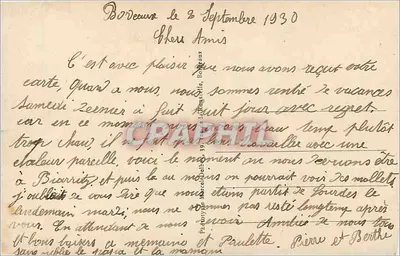 Bordeaux le 3 Septembre 1930
Chers Amis
C'est avec plaisir que nous avons reçut votre
carte, quand a nous, nous sommes rentré de vacances
samedi fait huit jour avec regret
car en ce moment temp plutôt
trop chaud, il avec une
chaleur pareille, voici le moment ou nous devrions être
à Biarritz, et puis la au moins on pourrait voir des mollets
j'oubliais de vous dire que nous étions partit de Lourdes le
lendemain mardi, nous ne sommes pas resté longtemp après
vous. En attendant de nous revoir Amitiés de nous tous
et bons baisers a memaine et Paulette. Pierre et Berthe
sans oublié le papa et la maman
CPAPHIL